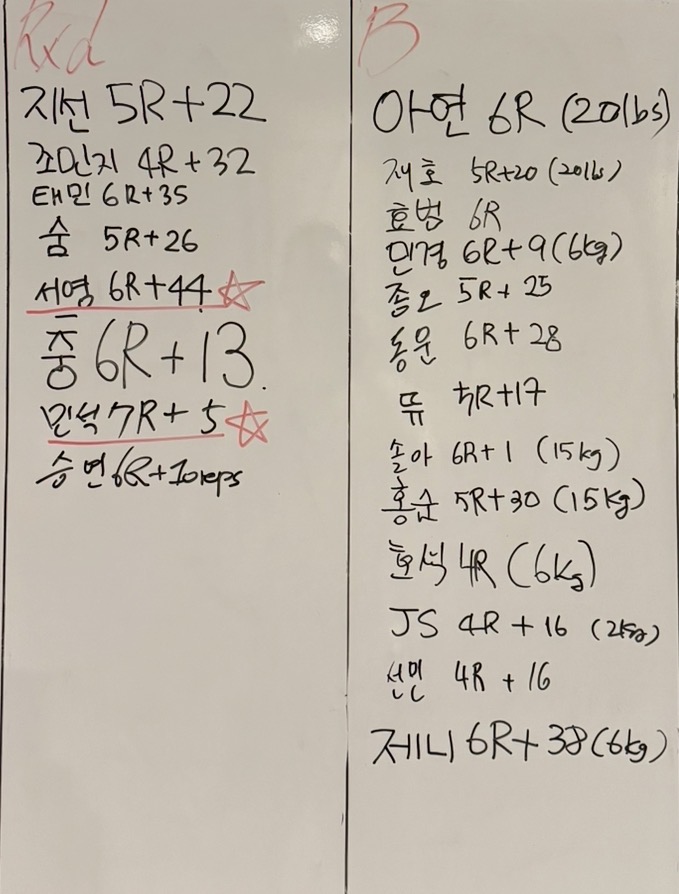 Rxd
지선 5R+22
조민지 4R+32
태민 6R+35
숨 5R+26
서영 6R+44
중 6R+13
민석 7R+5
승연 6R+10reps
B
아연 6R (20lbs)
재호 5R+20 (20lbs)
효범 6R
민경 6R+9 (6kg)
종오 5R+25
동운 6R+28
뜌 5R+17
솔아 6R+1 (15kg)
홍순 5R+30 (15kg)
호석 4R (6kg)
JS 4R+16 (2kg)
선민 4R+16
제니 6R+38 (6kg)